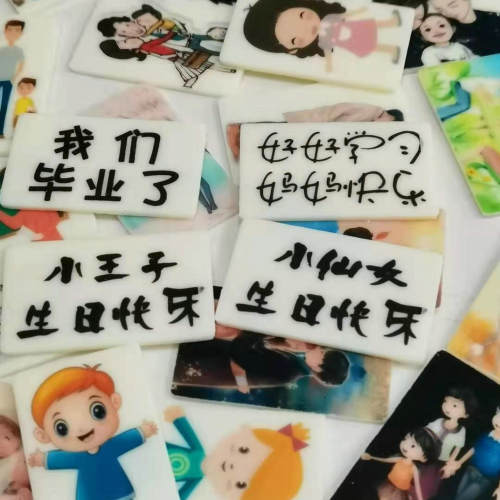 我们
毕业了
好好学习
妈妈快乐
小王子
生日快乐
小仙女
生日快乐